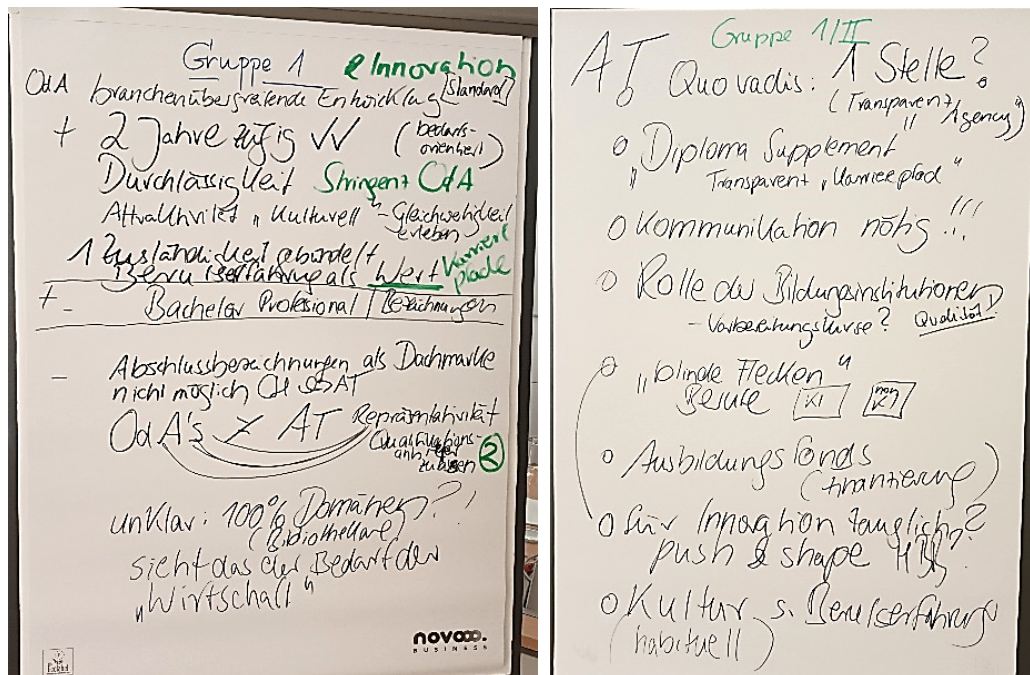 Gruppe 1 & Innovation
OdA branchenübergreifende Entwicklung [Standard]
+ 2 Jahre zügig VV (bedarfs-
orientiert)
Durchlässigkeit Stringent OdA
Attraktivität "Kulturell" - Gleichwertigkeit
erleben
1 Zuständigkeit gebündelt
Berufserfahrung als Wert Karriere
pfade
+ - Bachelor Professional / Bezeichnungen
- Abschlussbezeichnungen als Dachmarke
nicht möglich
OdA's AT Repräsentativität
Qualifikations-
zulassen 2
unklar: 100% Domänen?!
(Bibliothekare)
sieht das der Bedarf der
"Wirtschaft"
novooo.
BUSINESS
Gruppe 1/II
AT Quo vadis: 1 Stelle?
(Transparent
"Agency")
o Diploma Supplement
" Transparent "Karrierepfad"
o Kommunikation nötig!!!
o Rolle der Bildungsinstitutionen
- Vorbereitungskurse? Qualität!
o "blinde Flecken"
Berufe KI non KI
o Ausbildungsfonds
(Finanzierung)
o für Innovation tauglich?
push & shape HBB?
o Kultur s. Berufserfahrung
(habituell)